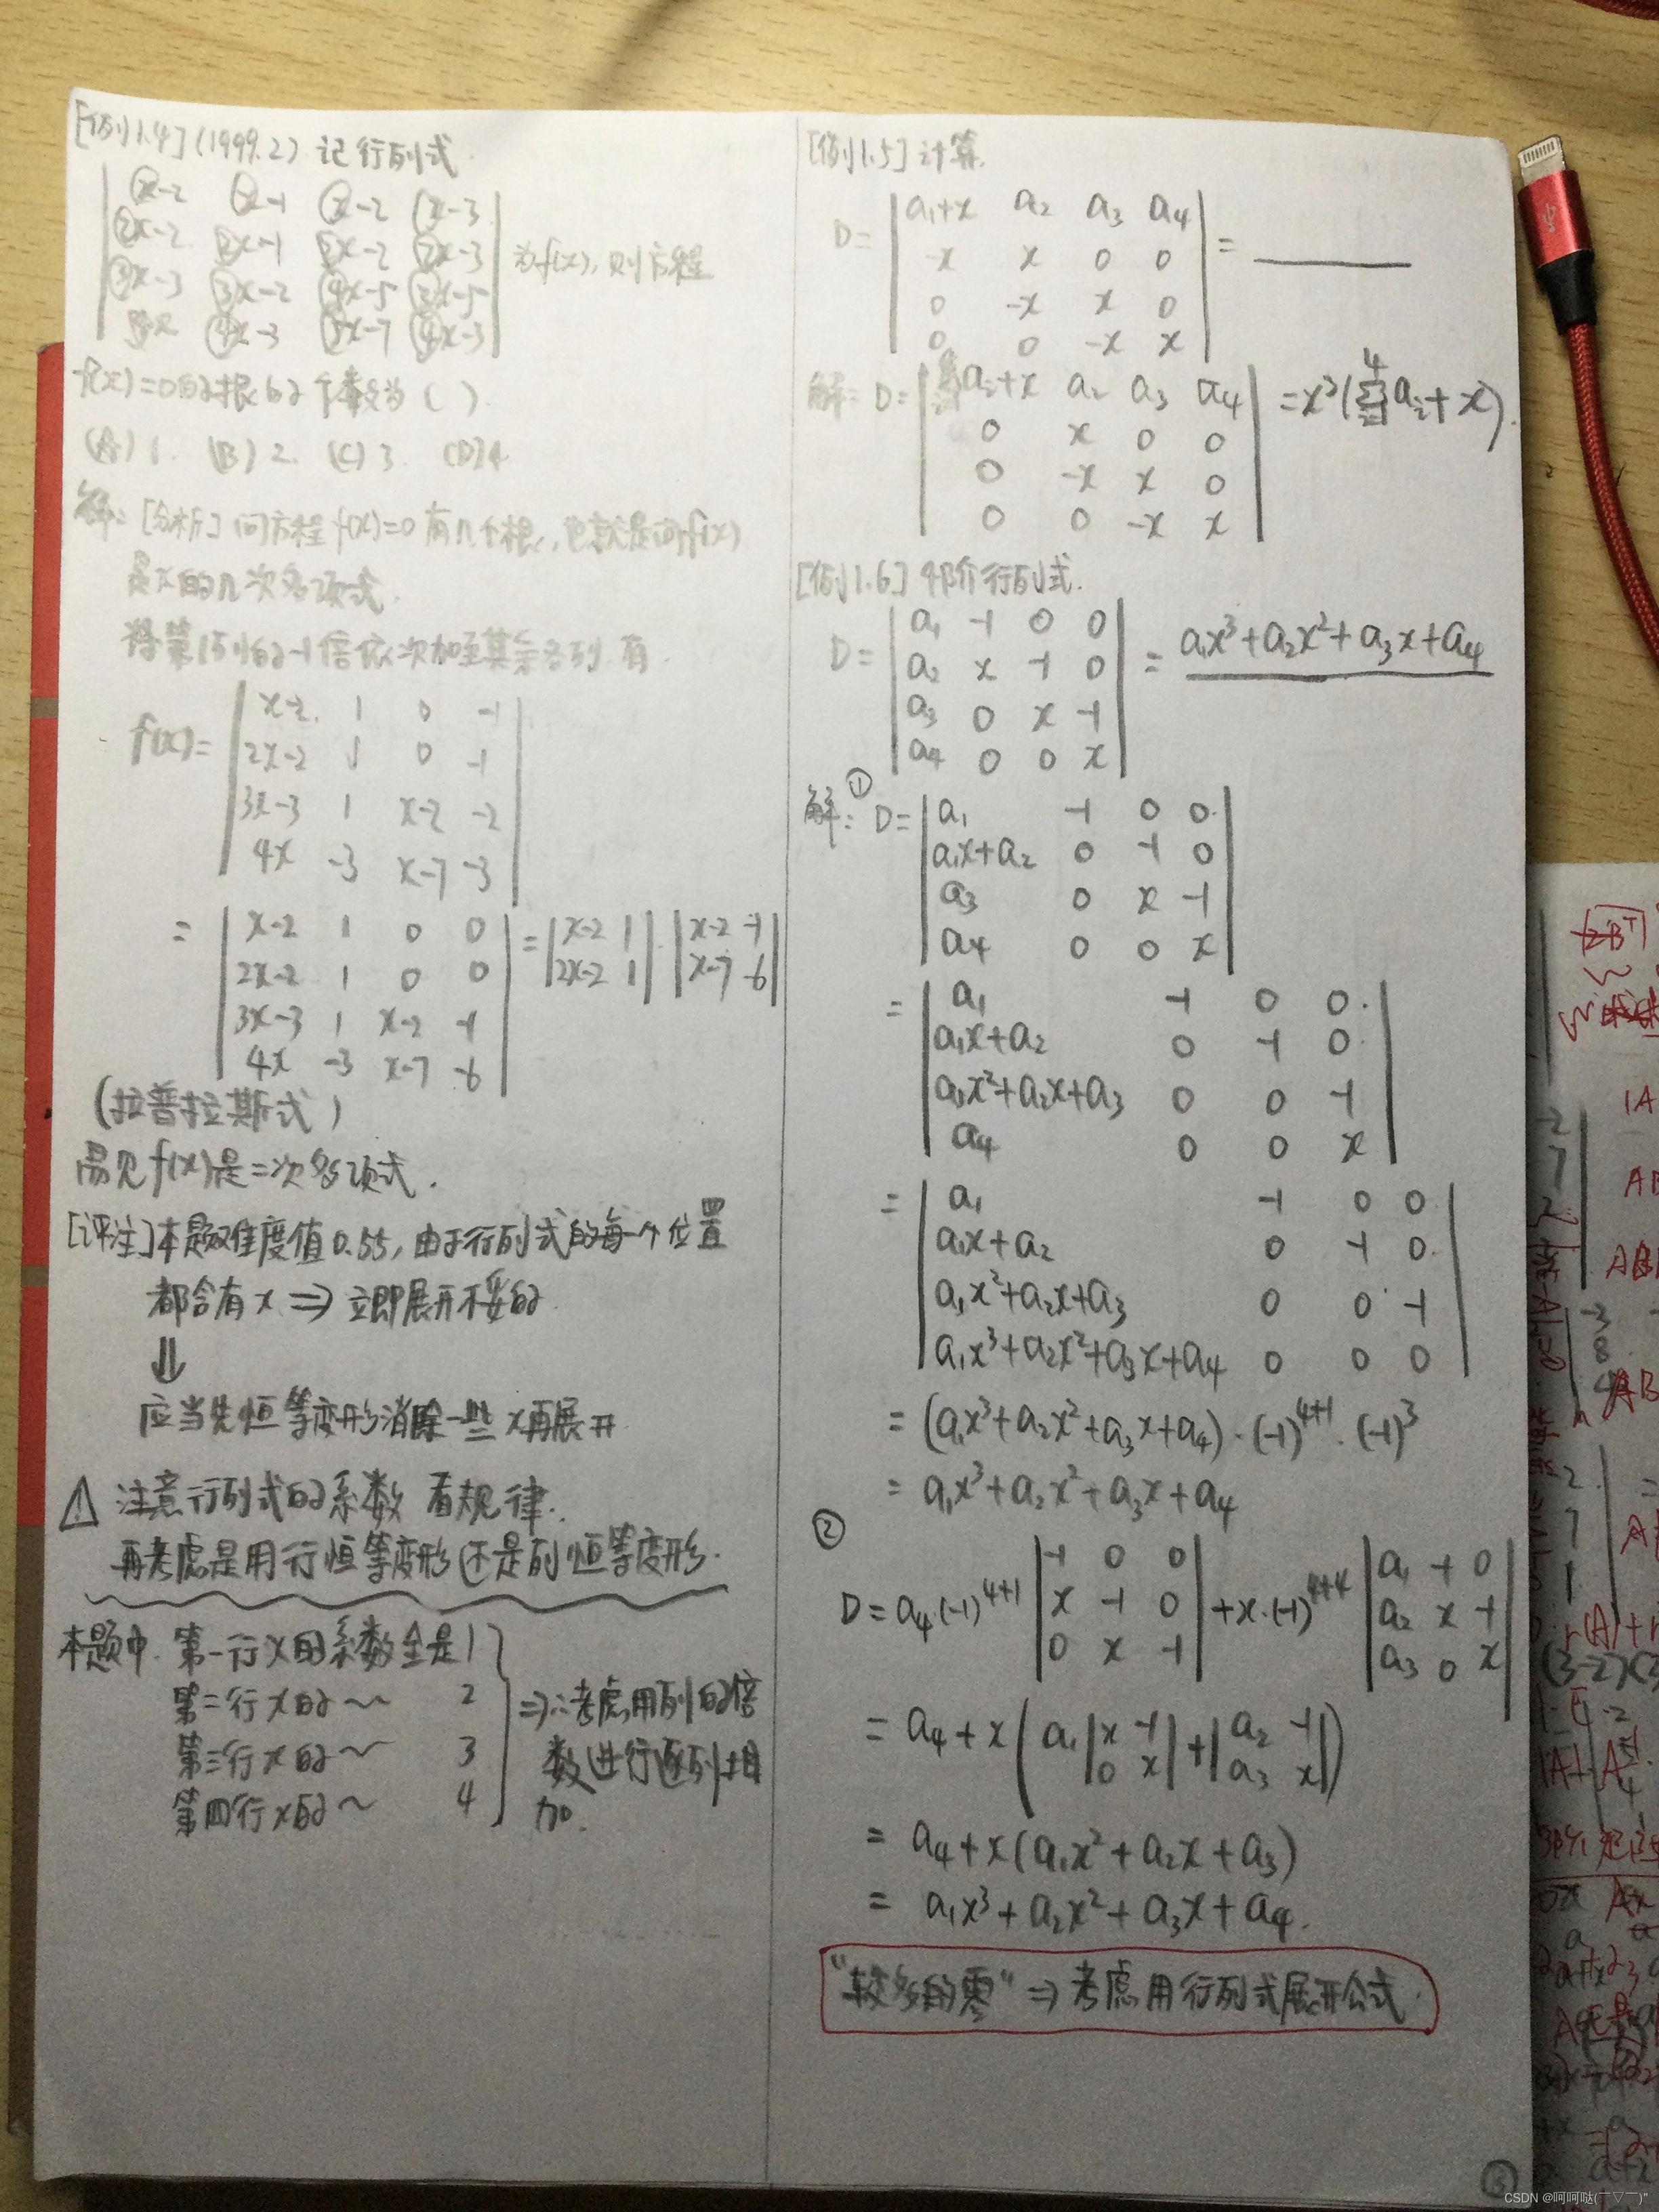 [例1.4](1999.2) 记行列式
x-2 x-1 x-2 x-3
2x-2 2x-1 2x-2 2x-3
为f(x),则方程
3x-3 3x-2 4x-5 3x-5
4x-3 5x-7 4x-3
f(x)=0的根的个数为( ).
(A) 1. (B) 2. (C) 3. (D) 4
解:[分析] 问方程f(x)=0有几个根,也就是问f(x)
是x的几次多项式.
将第1列的-1倍依次加至其余各列.有
f(x)=
x-2 1 0 -1
2x-2 1 0 -1
3x-3 1 x-2 -2
4x -3 x-7 -3
=
x-2 1 0 0
2x-2 1 0 0
3x-3 1 x-2 -1
4x -3 x-7 -6
= |x-2 1| · |x-2 -1|
|2x-2 1| |x-7 -6|
(拉普拉斯式)
易见f(x)是二次多项式.
[评注]本题难度值0.55,由于行列式的每一个位置
都含有x ⇒ 立即展开不妥的
⇓
应当先恒等变形消除一些x再展开
⚠ 注意行列式的系数 看规律.
再考虑是用行恒等变形还是列恒等变形.
本题中.第一行x的系数全是1
第二行x的~ 2
第三行x的~ 3
第四行x的~ 4
⇒∴考虑用列的倍
数进行逐列相
加.
[例1.5]计算.
D=
a₁+x a₂ a₃ a₄
-x x 0 0
0 -x x 0
0 0 -x x
= ______
解: D=
a₂ a₃ a₄
0 x 0 0
0 -x x 0
0 0 -x x
=x³(∑aᵢ+x).
[例1.6] 4阶行列式.
D=
a₁ -1 0 0
a₂ x -1 0
a₃ 0 x -1
a₄ 0 0 x
= a₁x³+a₂x²+a₃x+a₄
解:① D=
a₁ -1 0 0
a₁x+a₂ 0 -1 0
a₃ 0 x -1
a₄ 0 0 x
=
a₁ -1 0 0
a₁x+a₂ 0 -1 0
a₁x²+a₂x+a₃ 0 0 -1
a₄ 0 0 x
=
a₁ -1 0 0
a₁x+a₂ 0 -1 0
a₁x²+a₂x+a₃ 0 0 -1
a₁x³+a₂x²+a₃x+a₄ 0 0 0
= (a₁x³+a₂x²+a₃x+a₄)·(-1)⁴⁺¹·(-1)³
= a₁x³+a₂x²+a₃x+a₄
②
D=a₄·(-1)⁴⁺¹ |-1 0 0| +x·(-1)⁴⁺⁴ |a₁ -1 0|
|x -1 0| |a₂ x -1|
|0 x -1| |a₃ 0 x|
= a₄+x(a₁|x -1|+|a₂ -1|)
|0 x| |a₃ x|
= a₄+x(a₁x²+a₂x+a₃)
= a₁x³+a₂x²+a₃x+a₄.
"较多的零"⇒考虑用行列式展开公式.
CSDN @呵呵哒(￣▽￣)"